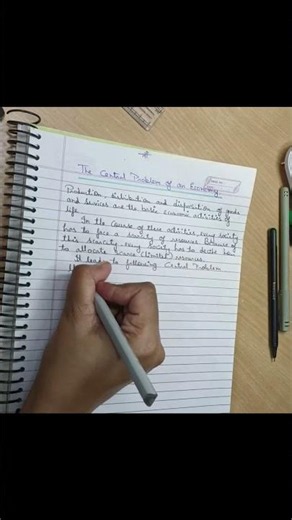 The Central Problem of an Economy
Production, distribution and disposition of goods
and services are the basic economic activities of
life.
In the course of these activities, every society
has to face a scarcity of resources. Because of
this scarcity, every society has to decide how
to allocate scarce (limited) resources.
It leads to following Central Problem